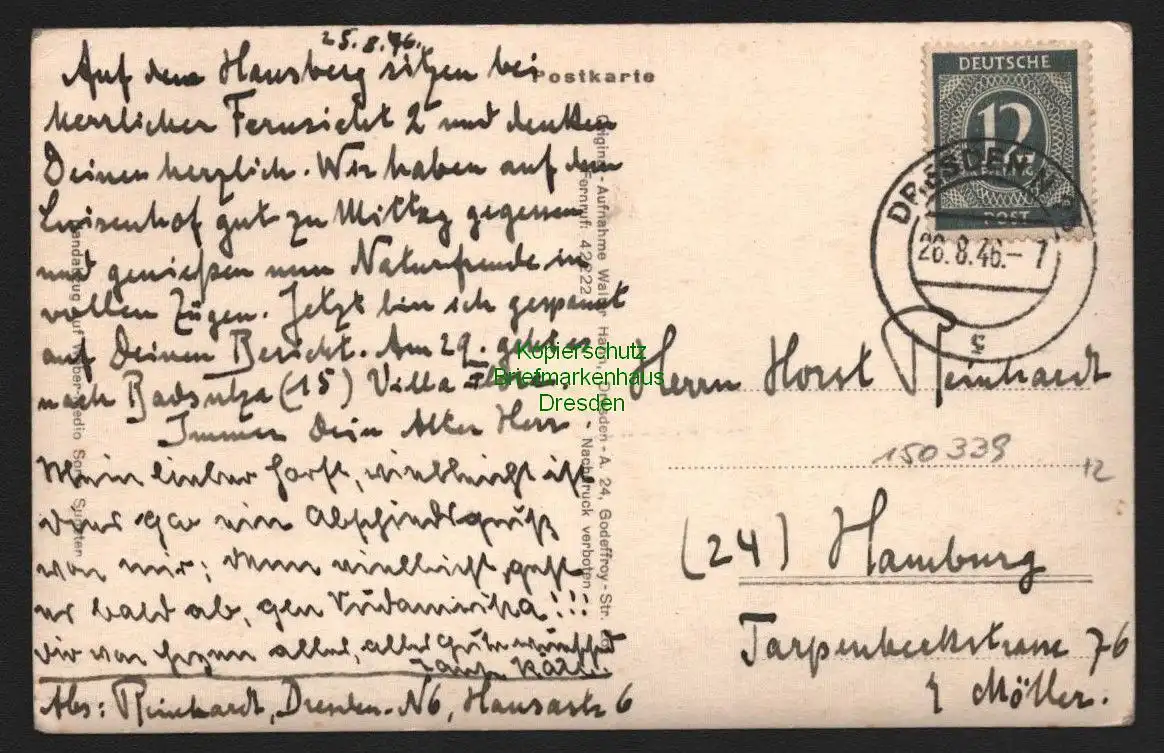 25.8.46.
Auf dem Hausberg sitzen bei
herrlicher Fernsicht 2 und denken
Deinen herzlich. Wir haben auf dem
Luisenhof gut zu Mittag gegessen
und genießen nun Naturfreude in
vollen Zügen. Jetzt bin ich gespannt
auf Deinen Bericht. Am 29. gehts
nach Badsulza (15) Villa
Immer Dein Alter Herr.
Mein lieber Horst, vielleicht ist
dies gar ein Abschiedsgruß
von mir; denn vielleicht geht
es bald ab, gen Südamerika!!!
Dir von Herzen alles, alles Gute wünschend
Tante Käthe.
Abs: Reinhardt, Dresden-N6, Hansastr 6
Postkarte
Original-Aufnahme Walter Hahn, Dresden-A. 24, Godeffroy-Str.
Fernruf: 42222 Nachdruck verboten
DEUTSCHE
12
POST
DRESDEN N
26.8.46.-7
s
Kopierschutz
Briefmarkenhaus
Dresden
Herrn Horst Reinhardt
150339
12
(24) Hamburg
Tarpenbeckstrasse 76
Möller.